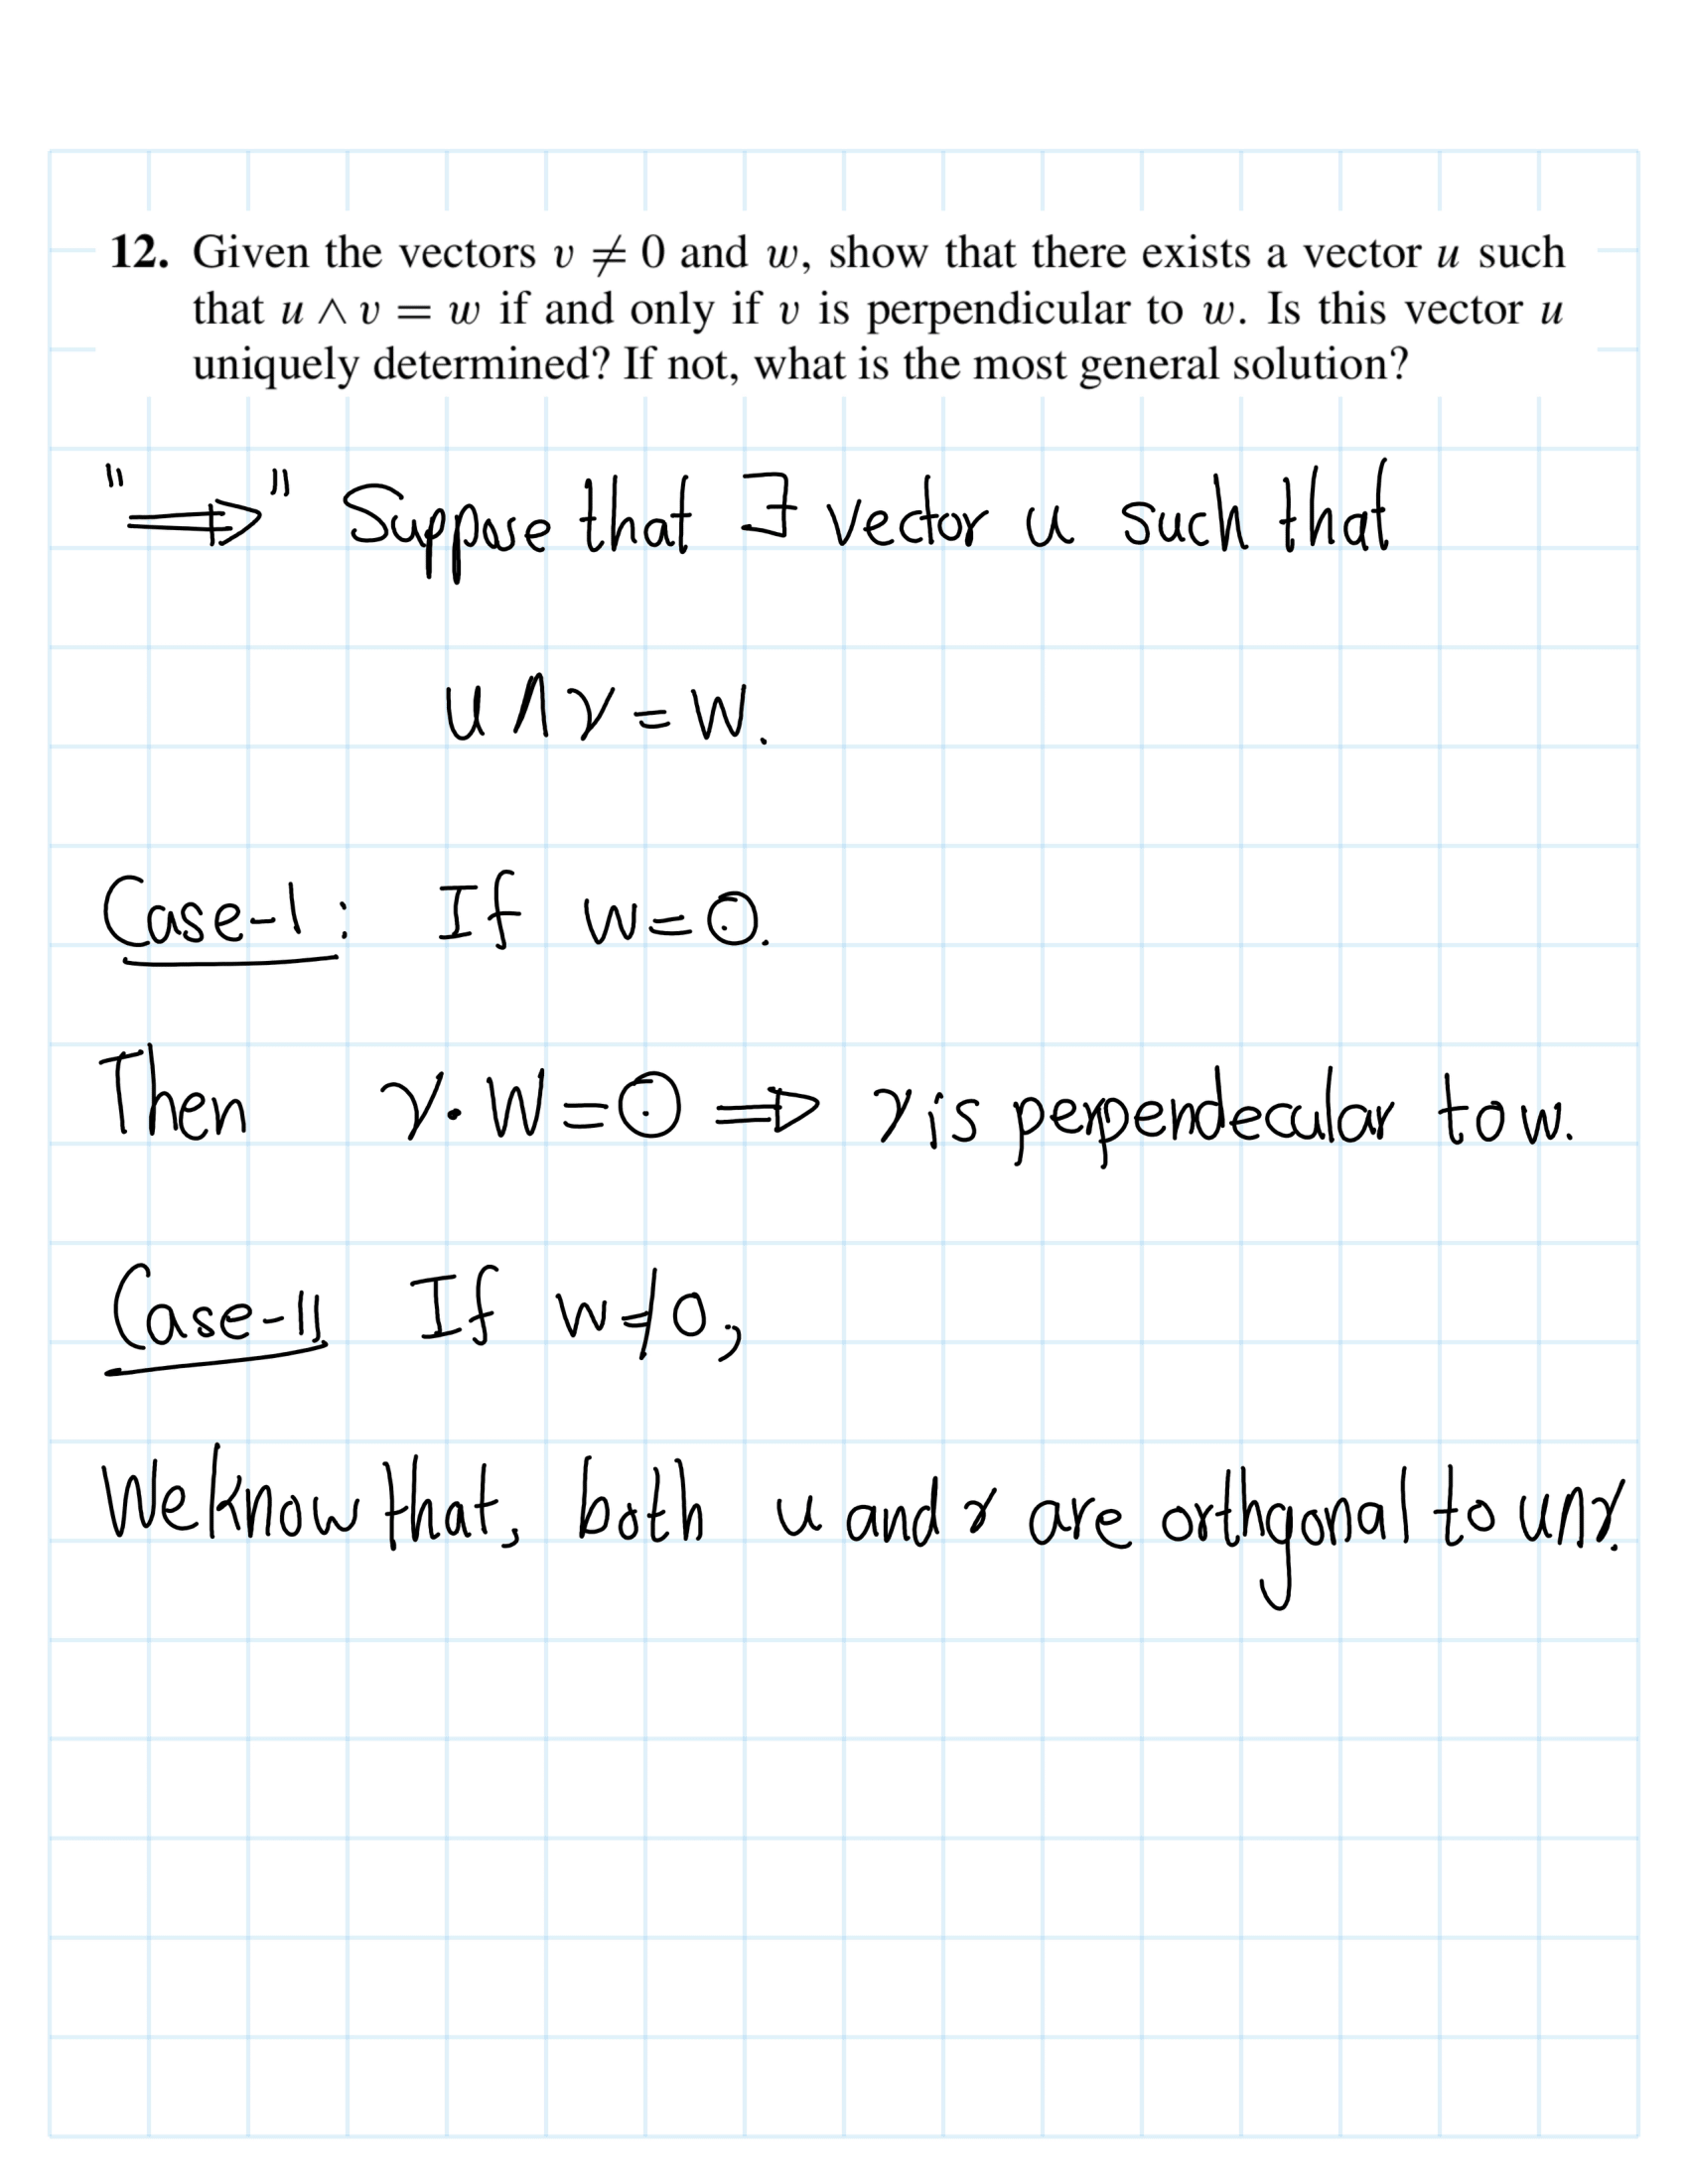 12. Given the vectors v ≠ 0 and w, show that there exists a vector u such
that u ∧ v = w if and only if v is perpendicular to w. Is this vector u
uniquely determined? If not, what is the most general solution?
"⟹" Suppose that ∃ vector u such that
u ∧ v = w.
Case-I: If w = 0.
Then v · w = 0 ⟹ v is perpendecular to w.
Case-II If w ≠ 0,
We know that, both u and v are orthgonal to u∧v.